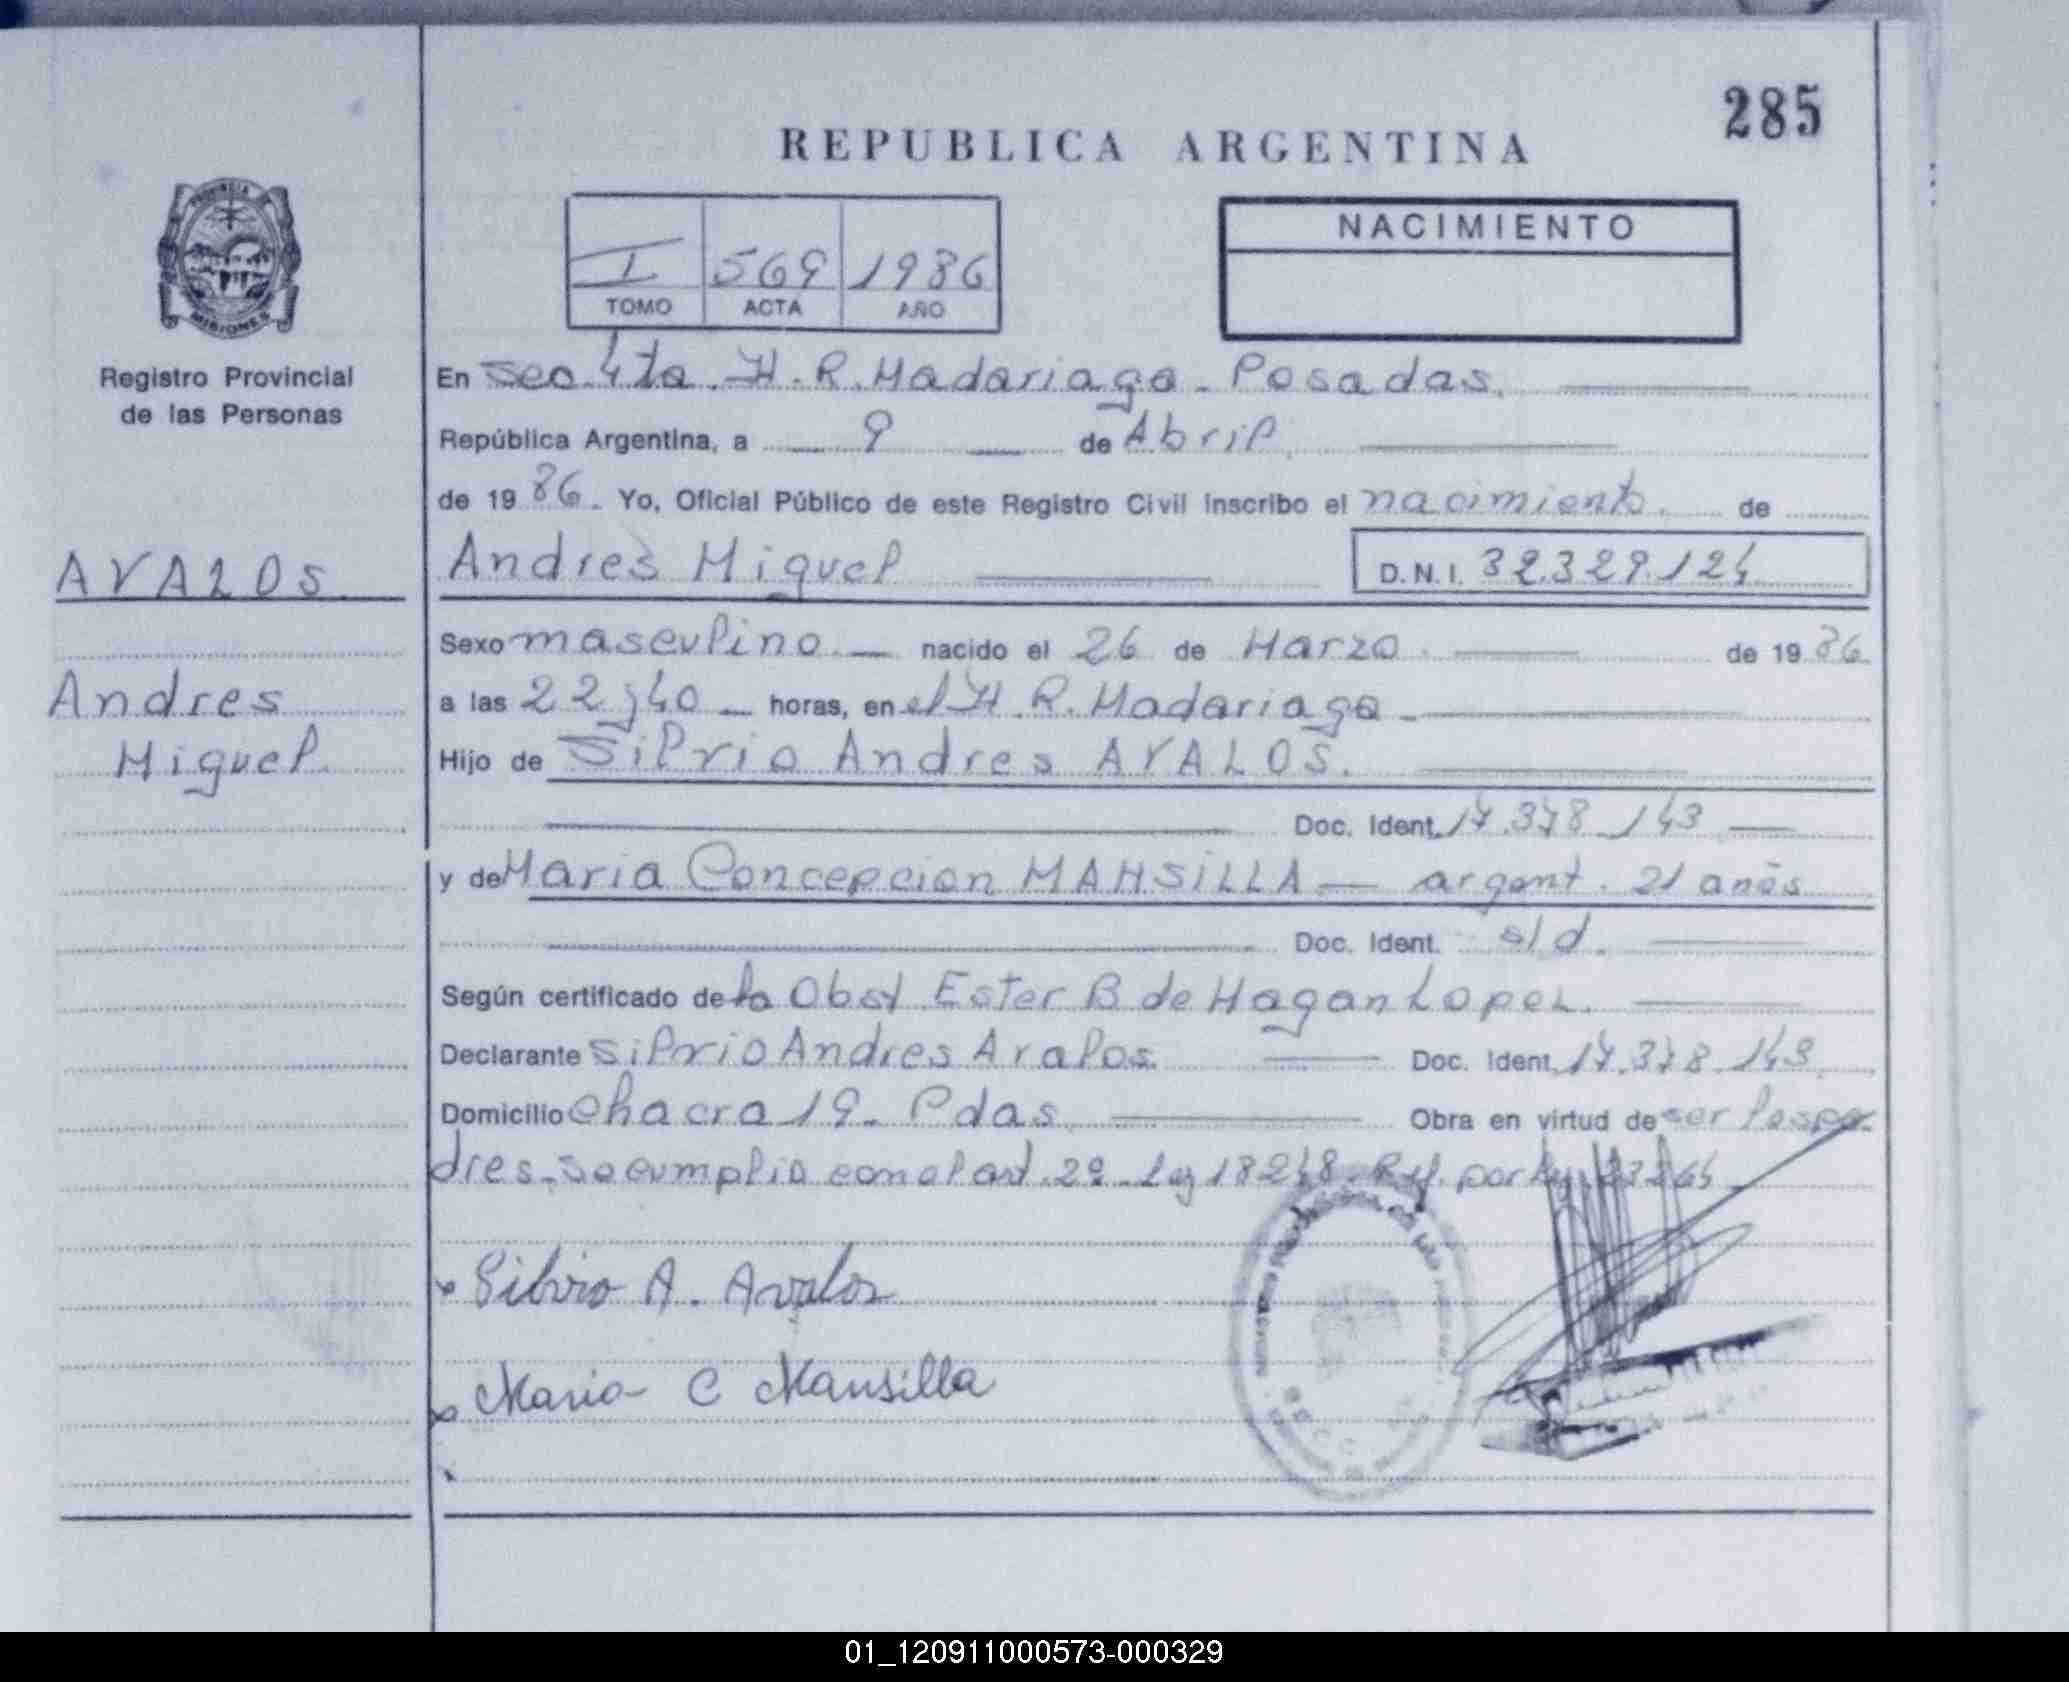 285
REPUBLICA ARGENTINA
PROVINCIA DE
MISIONES
Registro Provincial
de las Personas
I 569 1986
TOMO ACTA AÑO
NACIMIENTO
En Sec. 4ta. H. R. Madariaga - Posadas.
República Argentina, a 9 de Abril
de 1986. Yo, Oficial Público de este Registro Civil inscribo el nacimiento. de
AVALOS
Andres Miguel D.N.I. 32.329.124
Sexo masculino nacido el 26 de Marzo de 1986
Andres
a las 22,40 horas, en el H. R. Madariaga
Miguel
Hijo de Silvio Andres AVALOS.
Doc. Ident. 17.378.143
y de Maria Concepcion MANSILLA argent. 21 años
Doc. Ident. s/d.
Según certificado de la Obst Ester B de Hagan Lopez.
Declarante Silvio Andres Avalos. Doc. Ident. 17.378.143
Domicilio Chacra 19. Pdas Obra en virtud de ser los pa-
dres. Se cumplio con el art. 2º Ley 18248. por Ley 23264
Silvio A. Avalos
Maria C Mansilla
01_120911000573-000329